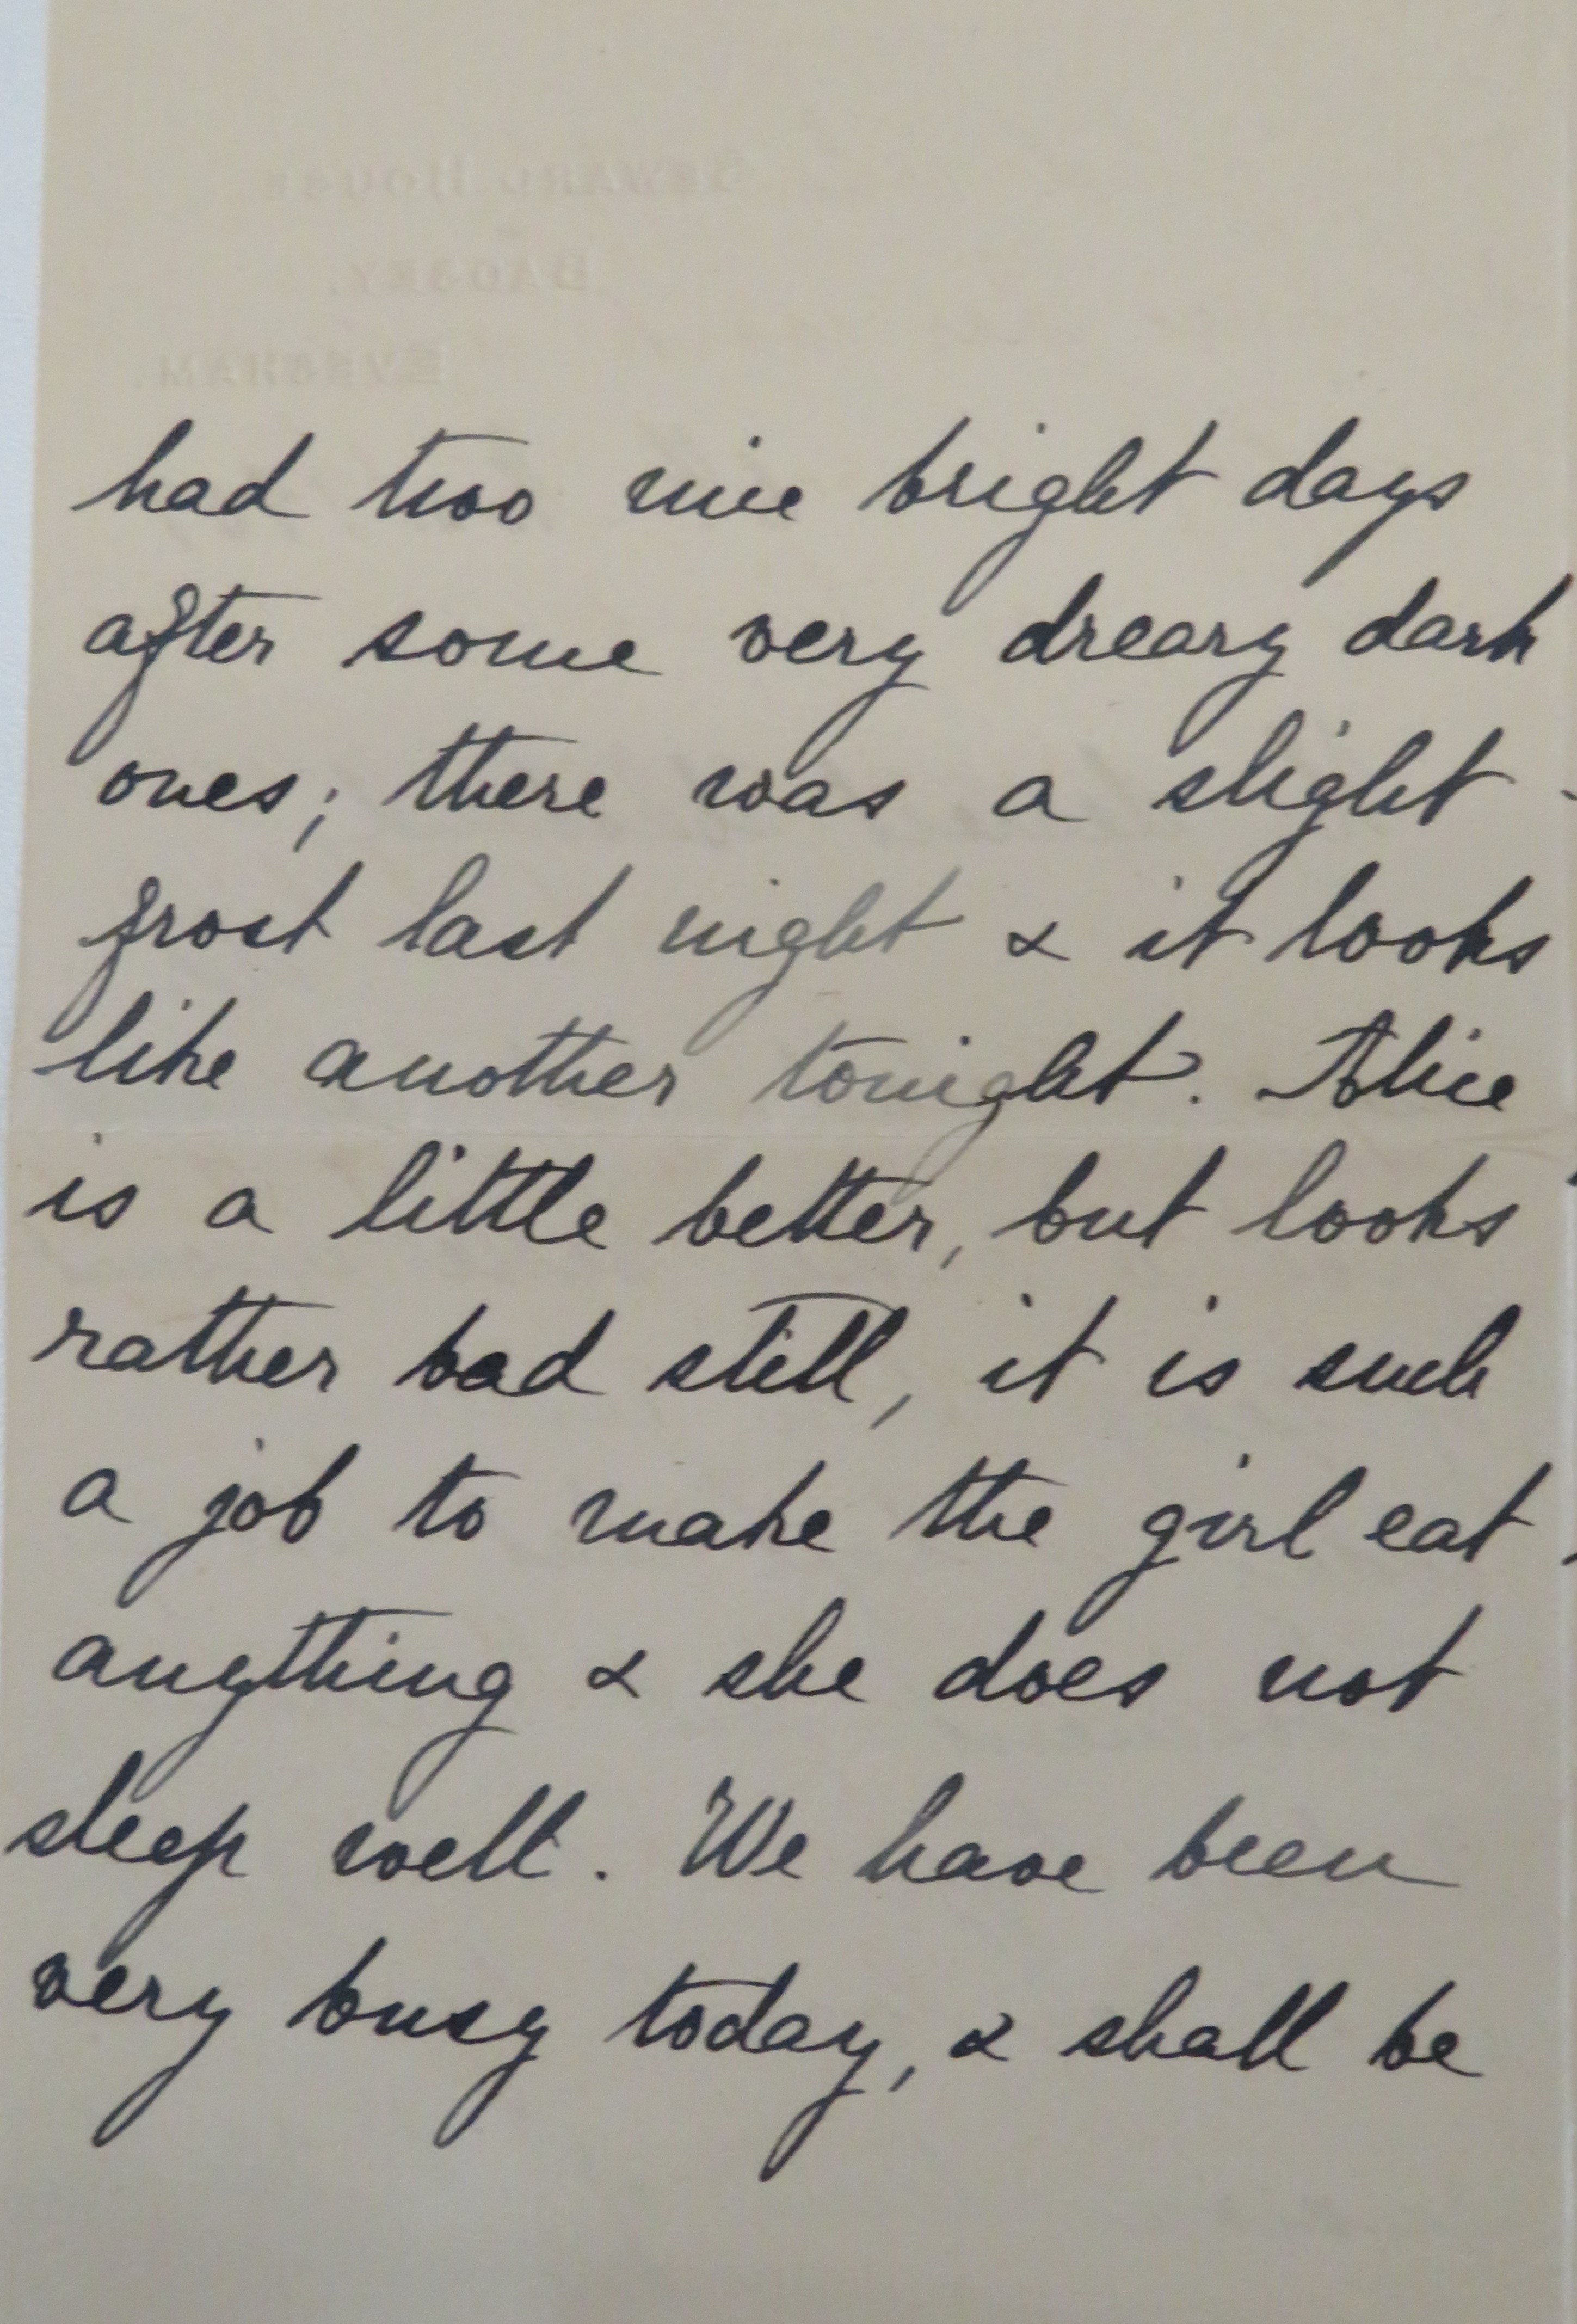 SEWARD HOUSE
BADSEY.
EVESHAM.
had two nice bright days
after some very dreary dark
ones; there was a slight
frost last night & it looks
like another tonight. Alice
is a little better, but looks
rather bad still, it is such
a job to make the girl eat
anything & she does not
sleep well. We have been
very busy today, & shall be